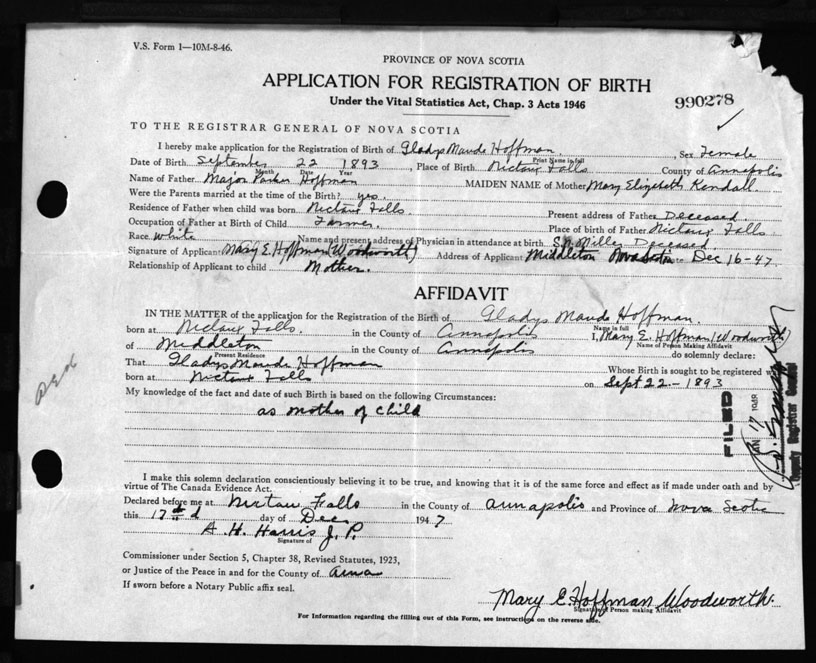 V.S. Form 1—10M-8-46.
PROVINCE OF NOVA SCOTIA
APPLICATION FOR REGISTRATION OF BIRTH
Under the Vital Statistics Act, Chap. 3 Acts 1946
990278
TO THE REGISTRAR GENERAL OF NOVA SCOTIA
I hereby make application for the Registration of Birth of Gladys Maude Hoffman, Sex Female
Print Name in full
Date of Birth September 22 1893, Place of Birth Nictaux Falls County of Annapolis
Month Date Year
Name of Father Major Parker Hoffman MAIDEN NAME of Mother Mary Elizabeth Randall.
Were the Parents married at the time of the Birth? yes.
Residence of Father when child was born Nictaux Falls. Present address of Father Deceased.
Occupation of Father at Birth of Child Farmer. Place of birth of Father Nictaux Falls.
Race white Name and present address of Physician in attendance at birth S.N. Miller Deceased.
Signature of Applicant Mary E. Hoffman (Woodworth) Address of Applicant Middleton Nova Scotia Date Dec 16-47
Relationship of Applicant to child Mother.
AFFIDAVIT
IN THE MATTER of the application for the Registration of the Birth of Gladys Maude Hoffman
Name in full
born at Nictaux Falls. in the County of Annapolis I, Mary E. Hoffman (Woodworth)
Name of Person Making Affidavit
of Middleton in the County of Annapolis do solemnly declare:
Present Residence
That Gladys Maude Hoffman Whose Birth is sought to be registered was
born at Nictaux Falls on Sept 22-1893
My knowledge of the fact and date of such Birth is based on the following Circumstances:
as mother of child
FILED
JAN 17 1948
Deputy Registrar General
I make this solemn declaration conscientiously believing it to be true, and knowing that it is of the same force and effect as if made under oath and by
virtue of The Canada Evidence Act.
Declared before me at Nictaux Falls in the County of annapolis and Province of nova Scotia
this 17th day of Dec 1947
A. H. Harris J. P.
Signature of
Commissioner under Section 5, Chapter 38, Revised Statutes, 1923,
or Justice of the Peace in and for the County of anna
If sworn before a Notary Public affix seal.
Mary E. Hoffman Woodworth.
Signature of Person making Affidavit
For Information regarding the filling out of this Form, see instructions on the reverse side.